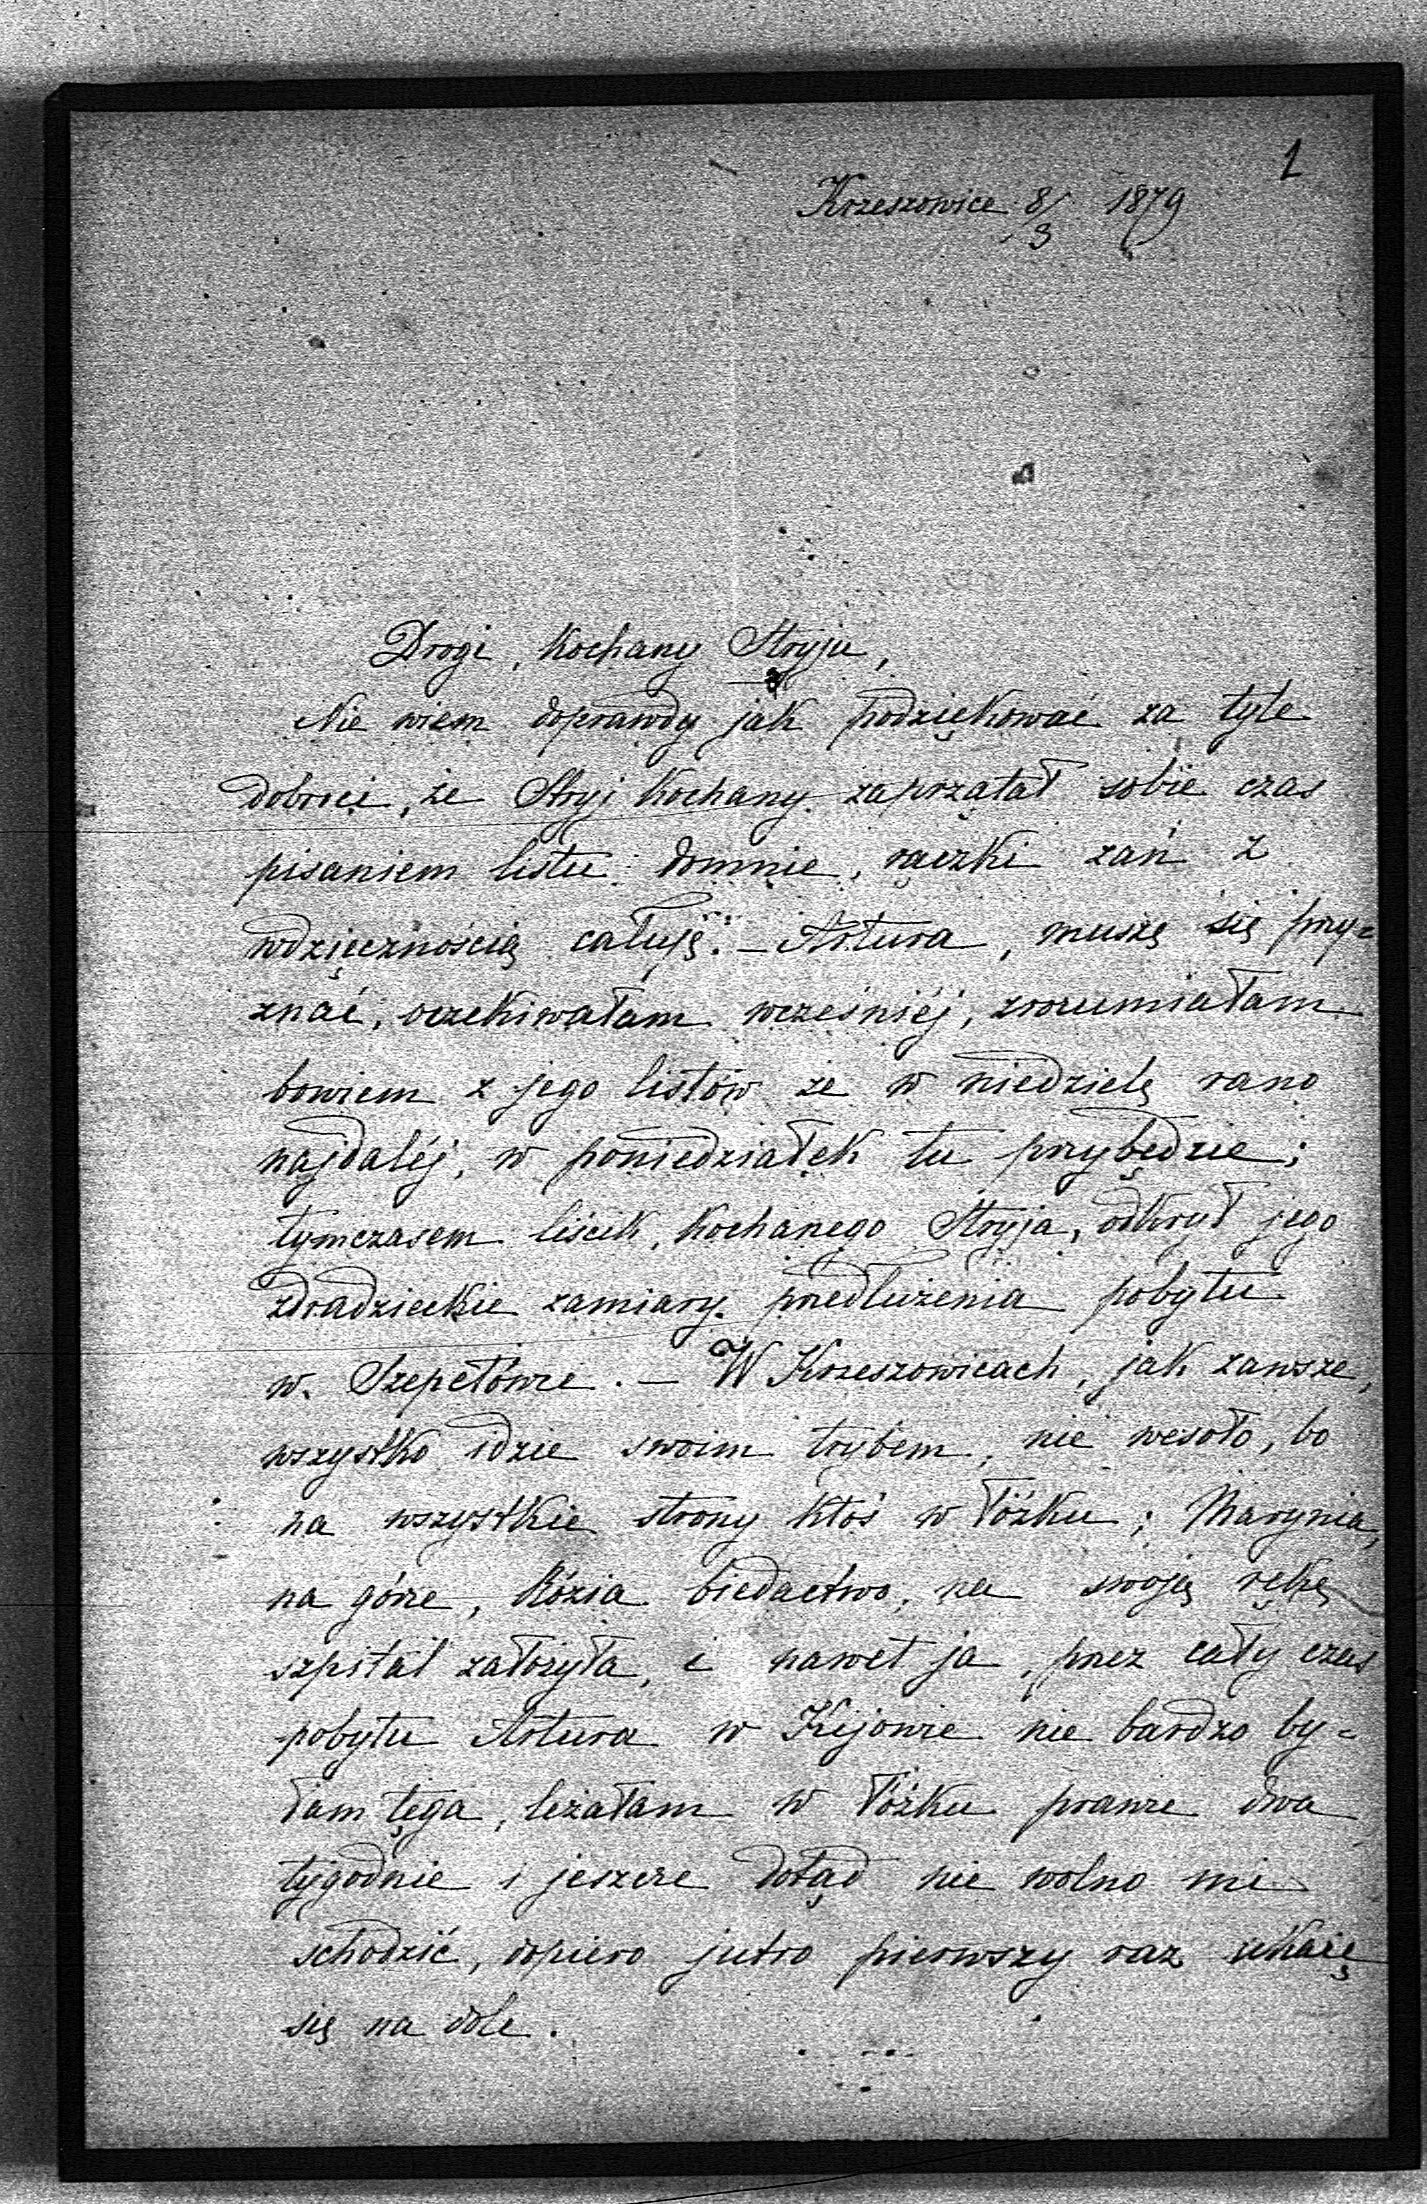 1
Krzeszowice 8/3 1879
Drogi, Kochany Stryju,
Nie wiem doprawdy jak podziękować za tyle
dobroci, że Stryj Kochany zaprzątał sobie czas
pisaniem listu domnie, rączki zań z
wdzięcznością całuję. – Artura, muszę się przy=
znać, oczekiwałam wcześniéj, zrozumiałam
bowiem z jego listów że w niedzielę rano
najdaléj, w poniedziałek tu przybędzie;
tymczasem liścik, Kochanego Stryja, odkrył jego
zdradzieckie zamiary przedłużenia pobytu
w Szepetówce. – W Krzeszowicach, jak zawsze,
wszystko idzie swoim trybem, nie wesoło, bo
na wszystkie strony ktoś w łóżku; Marynia,
na górze, Rózia biedactwo, na swoję rękę
szpital założyła, i nawet ja, przez cały czas
pobytu Artura w Kijowie nie bardzo by=
łam tęga, leżałam w łóżku prawie dwa
tygodnie i jeszcze dotąd nie wolno mi
schodzić, dopiero jutro pierwszy raz ukażę
się na dole.